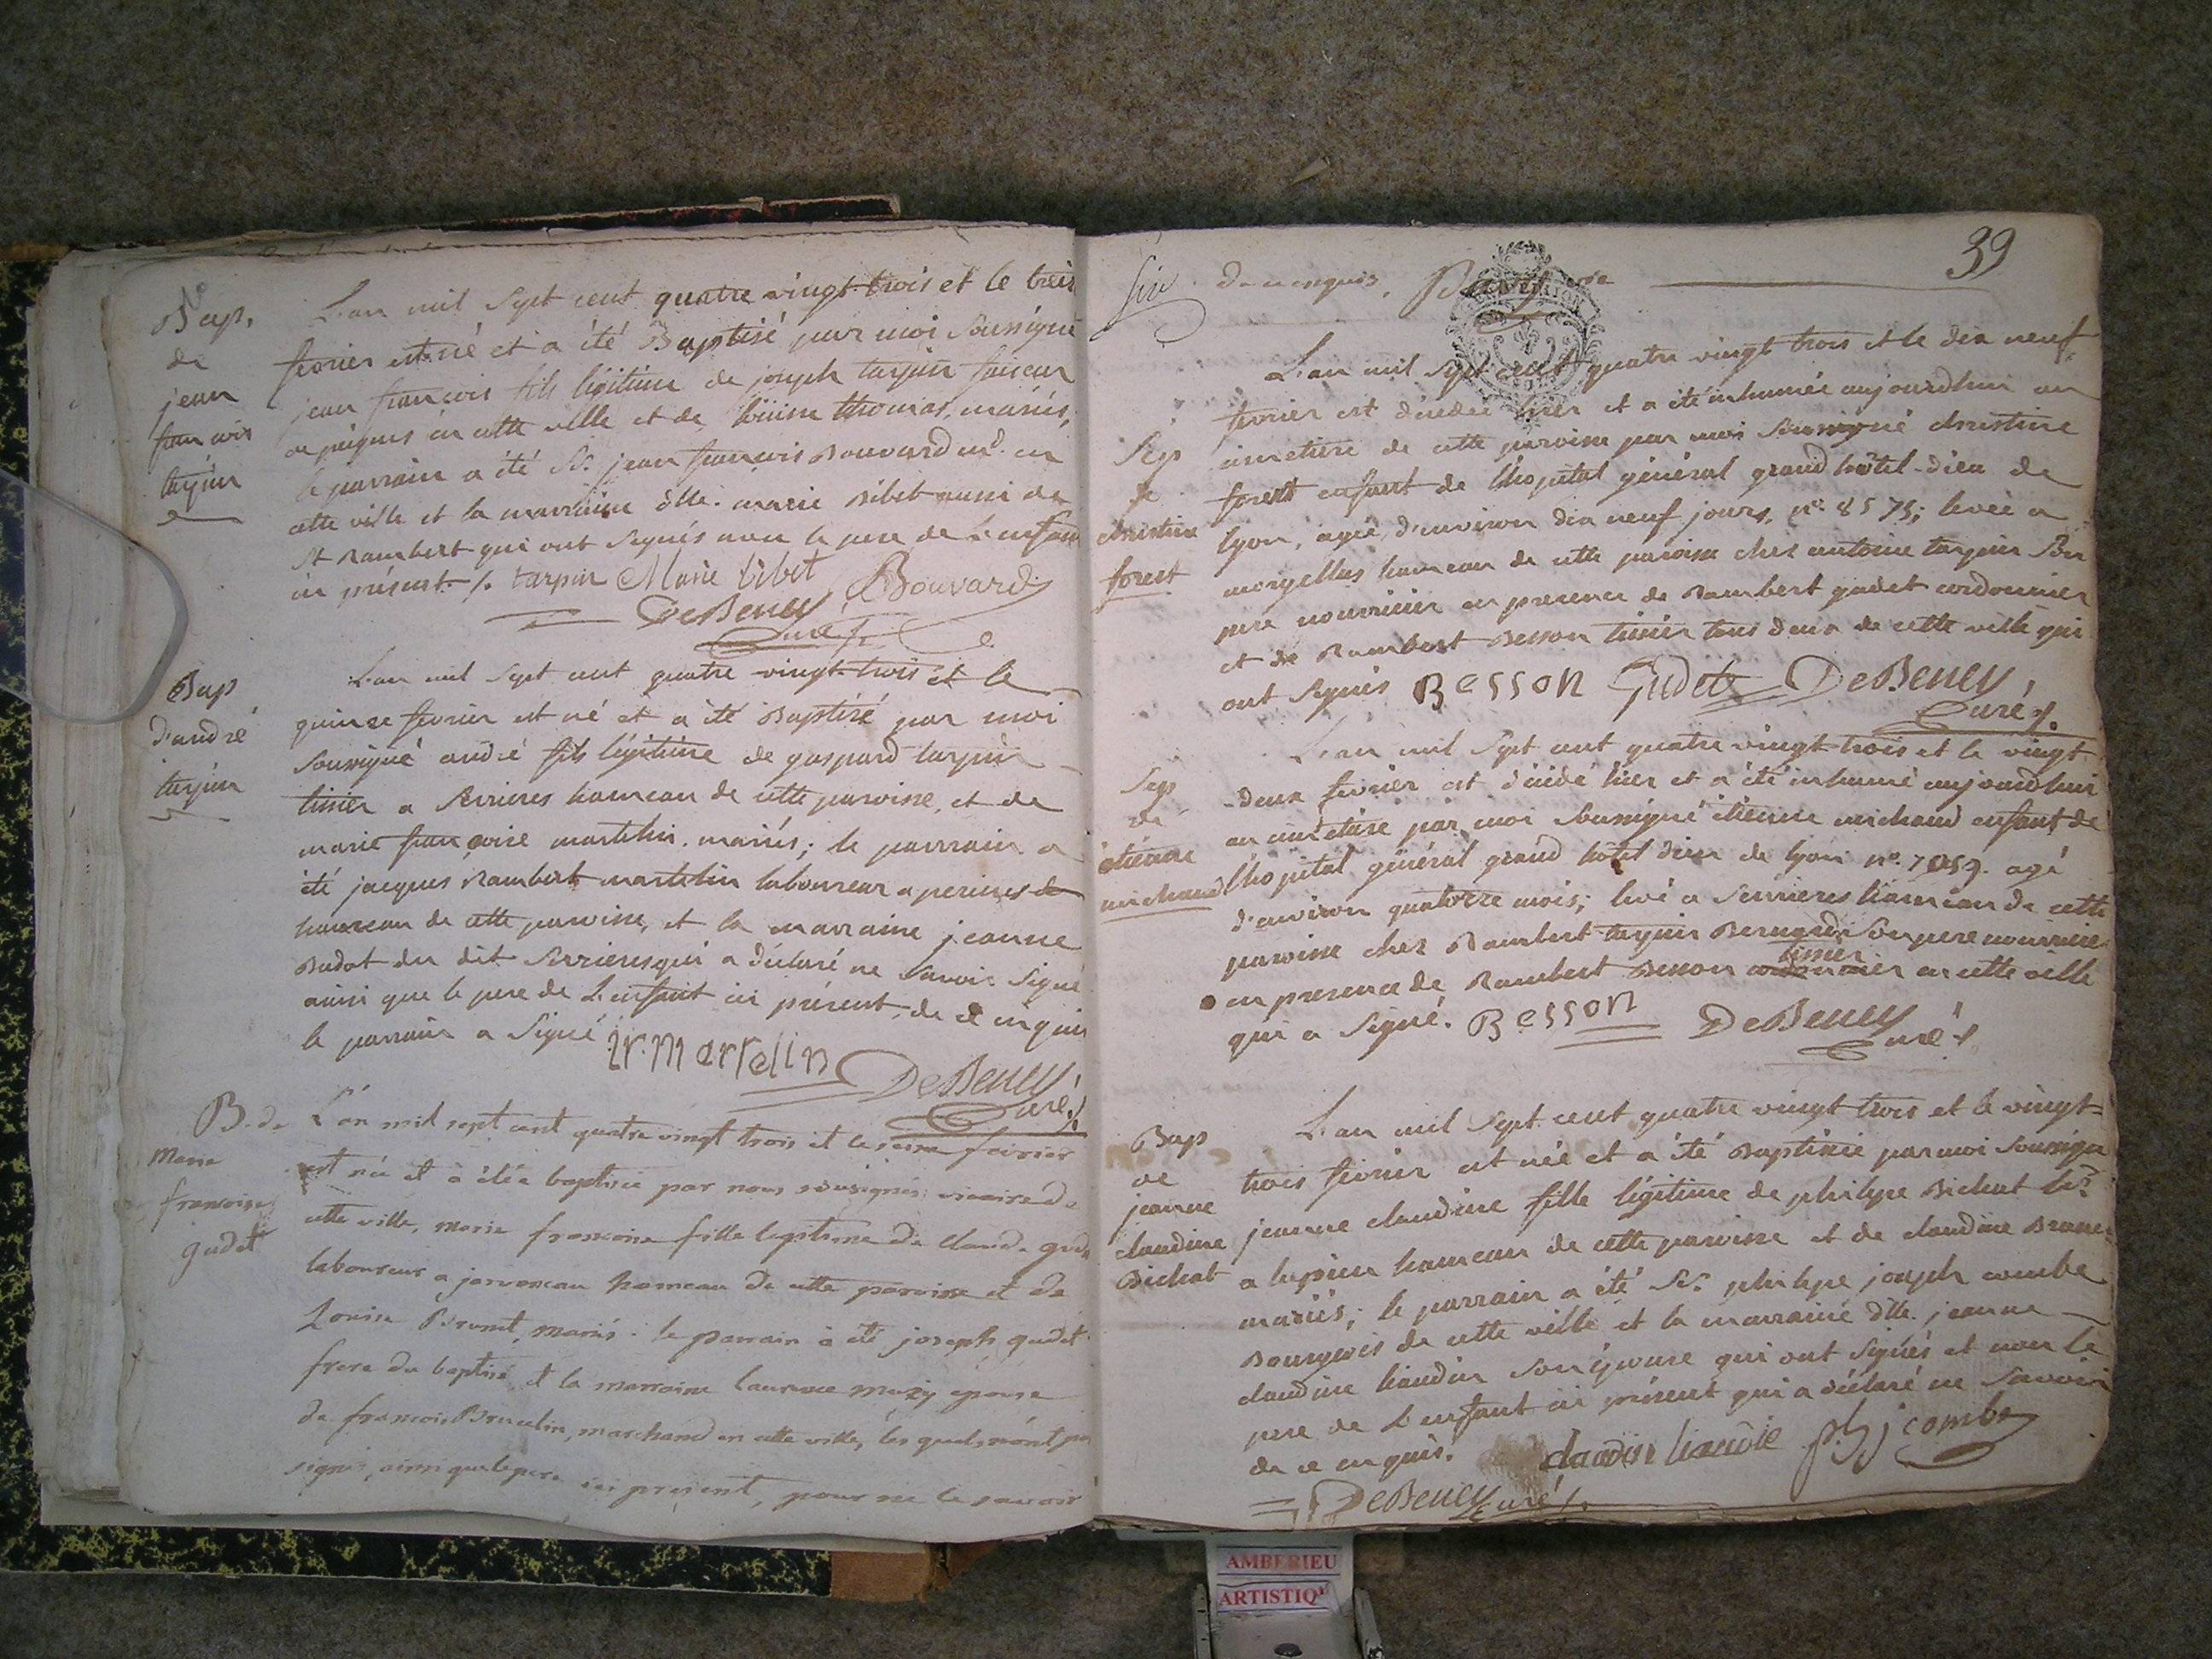 Bap.
de
jean
francois
tarpin
L'an mil sept cent quatre vingt trois et le treize
fevrier est né et a été Baptisé par moi soussigné
jean francois fils légitime de joseph tarpin faiseur
de peignes en cette ville et de loüise thomas, mariés;
le parrain a été Sr. jean francois Bouvard md. en
cette ville et la marraine dlle. marie Bibet aussi de
St Rambert qui ont signés avec le pere de L'enfant
ici présent. /. tarpin Marie bibet Bouvard
DeBeney
Curé /.
Bap
d'andré
tarpin
L'an mil sept cent quatre vingt trois et le
quinze fevrier est né et a été Baptisé par moi
soussigné andré fils légitime de gaspard tarpin
tissier a Serrieres hameau de cette paroisse, et de
marie francoise martelin mariés; le parrain a
été jacques Rambert martelin laboureur a
hameau de cette paroisse, et la marraine jeanne
Budot du dit Serrieres qui a déclaré ne savoir signé
ainsi que le pere de L'enfant ici présent, de ce enquis
le parrain a signé jr. martelin
DeBeney
Curé /.
B. de
Marie
francoise
gudet
L'an mil sept cent quatre vingt trois et le seize fevrier
est née et à étée baptisée par nous sousignés vicaire de
cette ville, marie francoise fille legitime de claude gudet
laboureur a javornoux hameau de cette paroisse et de
Louise Brunet, mariés. le parrain à été joseph gudet
frere du baptisé et la marraine laurence epouse
de francois marchand en cette ville, les quels n'ont pas
signés, ainsi que le pere ici present, pour ne le savoir
39
de ce enquis.
Sep
de
christine
forest
L'an mil sept cent quatre vingt trois et le dix neuf
fevrier est décédée hier et a été inhumée aujourdhui au
cimetiere de cette paroisse par moi soussigné christine
forest enfant de l'hopital général grand hôtel-dieu de
lyon, agée d'environ dix neuf jours, no. 8575; levée a
morgellas hameau de cette paroisse chez antoine tarpin son
pere nourricier en presence de Rambert gudet cordonnier
et de Rambert Besson tissier tous deux de cette ville qui
ont signés Besson Gudet DeBeney
Curé /.
Sep
de
étienne
michaud
L'an mil sept cent quatre vingt trois et le vingt
deux fevrier est décédé hier et a été inhumé aujourdhui
au cimetiere par moi soussigné étienne michaud enfant de
l'hopital général grand hôtel dieu de lyon no. 7059. agé
d'environ quatorze mois; levé a Serrieres hameau de cette
paroisse chez Rambert tarpin Bernardi son pere nourricier
tissier
en presence de Rambert Besson cordonnier en cette ville
qui a signé. Besson DeBeney
Curé /.
Bap
de
jeanne
claudine
Bichat
L'an mil sept cent quatre vingt trois et le vingt=
trois fevrier est née et a été Baptisée par moi soussigné
jeanne claudine fille légitime de philipe Bichat lr.
a lupieu hameau de cette paroisse et de claudine
mariés; le parrain a été Sr. philipe joseph combe
Bourgeois de cette ville et la marraine dlle. jeanne
claudine liaudin son épouse qui ont signés et non le
pere de L'enfant ici présent qui a déclaré ne savoir
de ce enquis. claudin liaudie ph j combe
DeBeney Curé /.
AMBERIEU
ARTISTIQ'